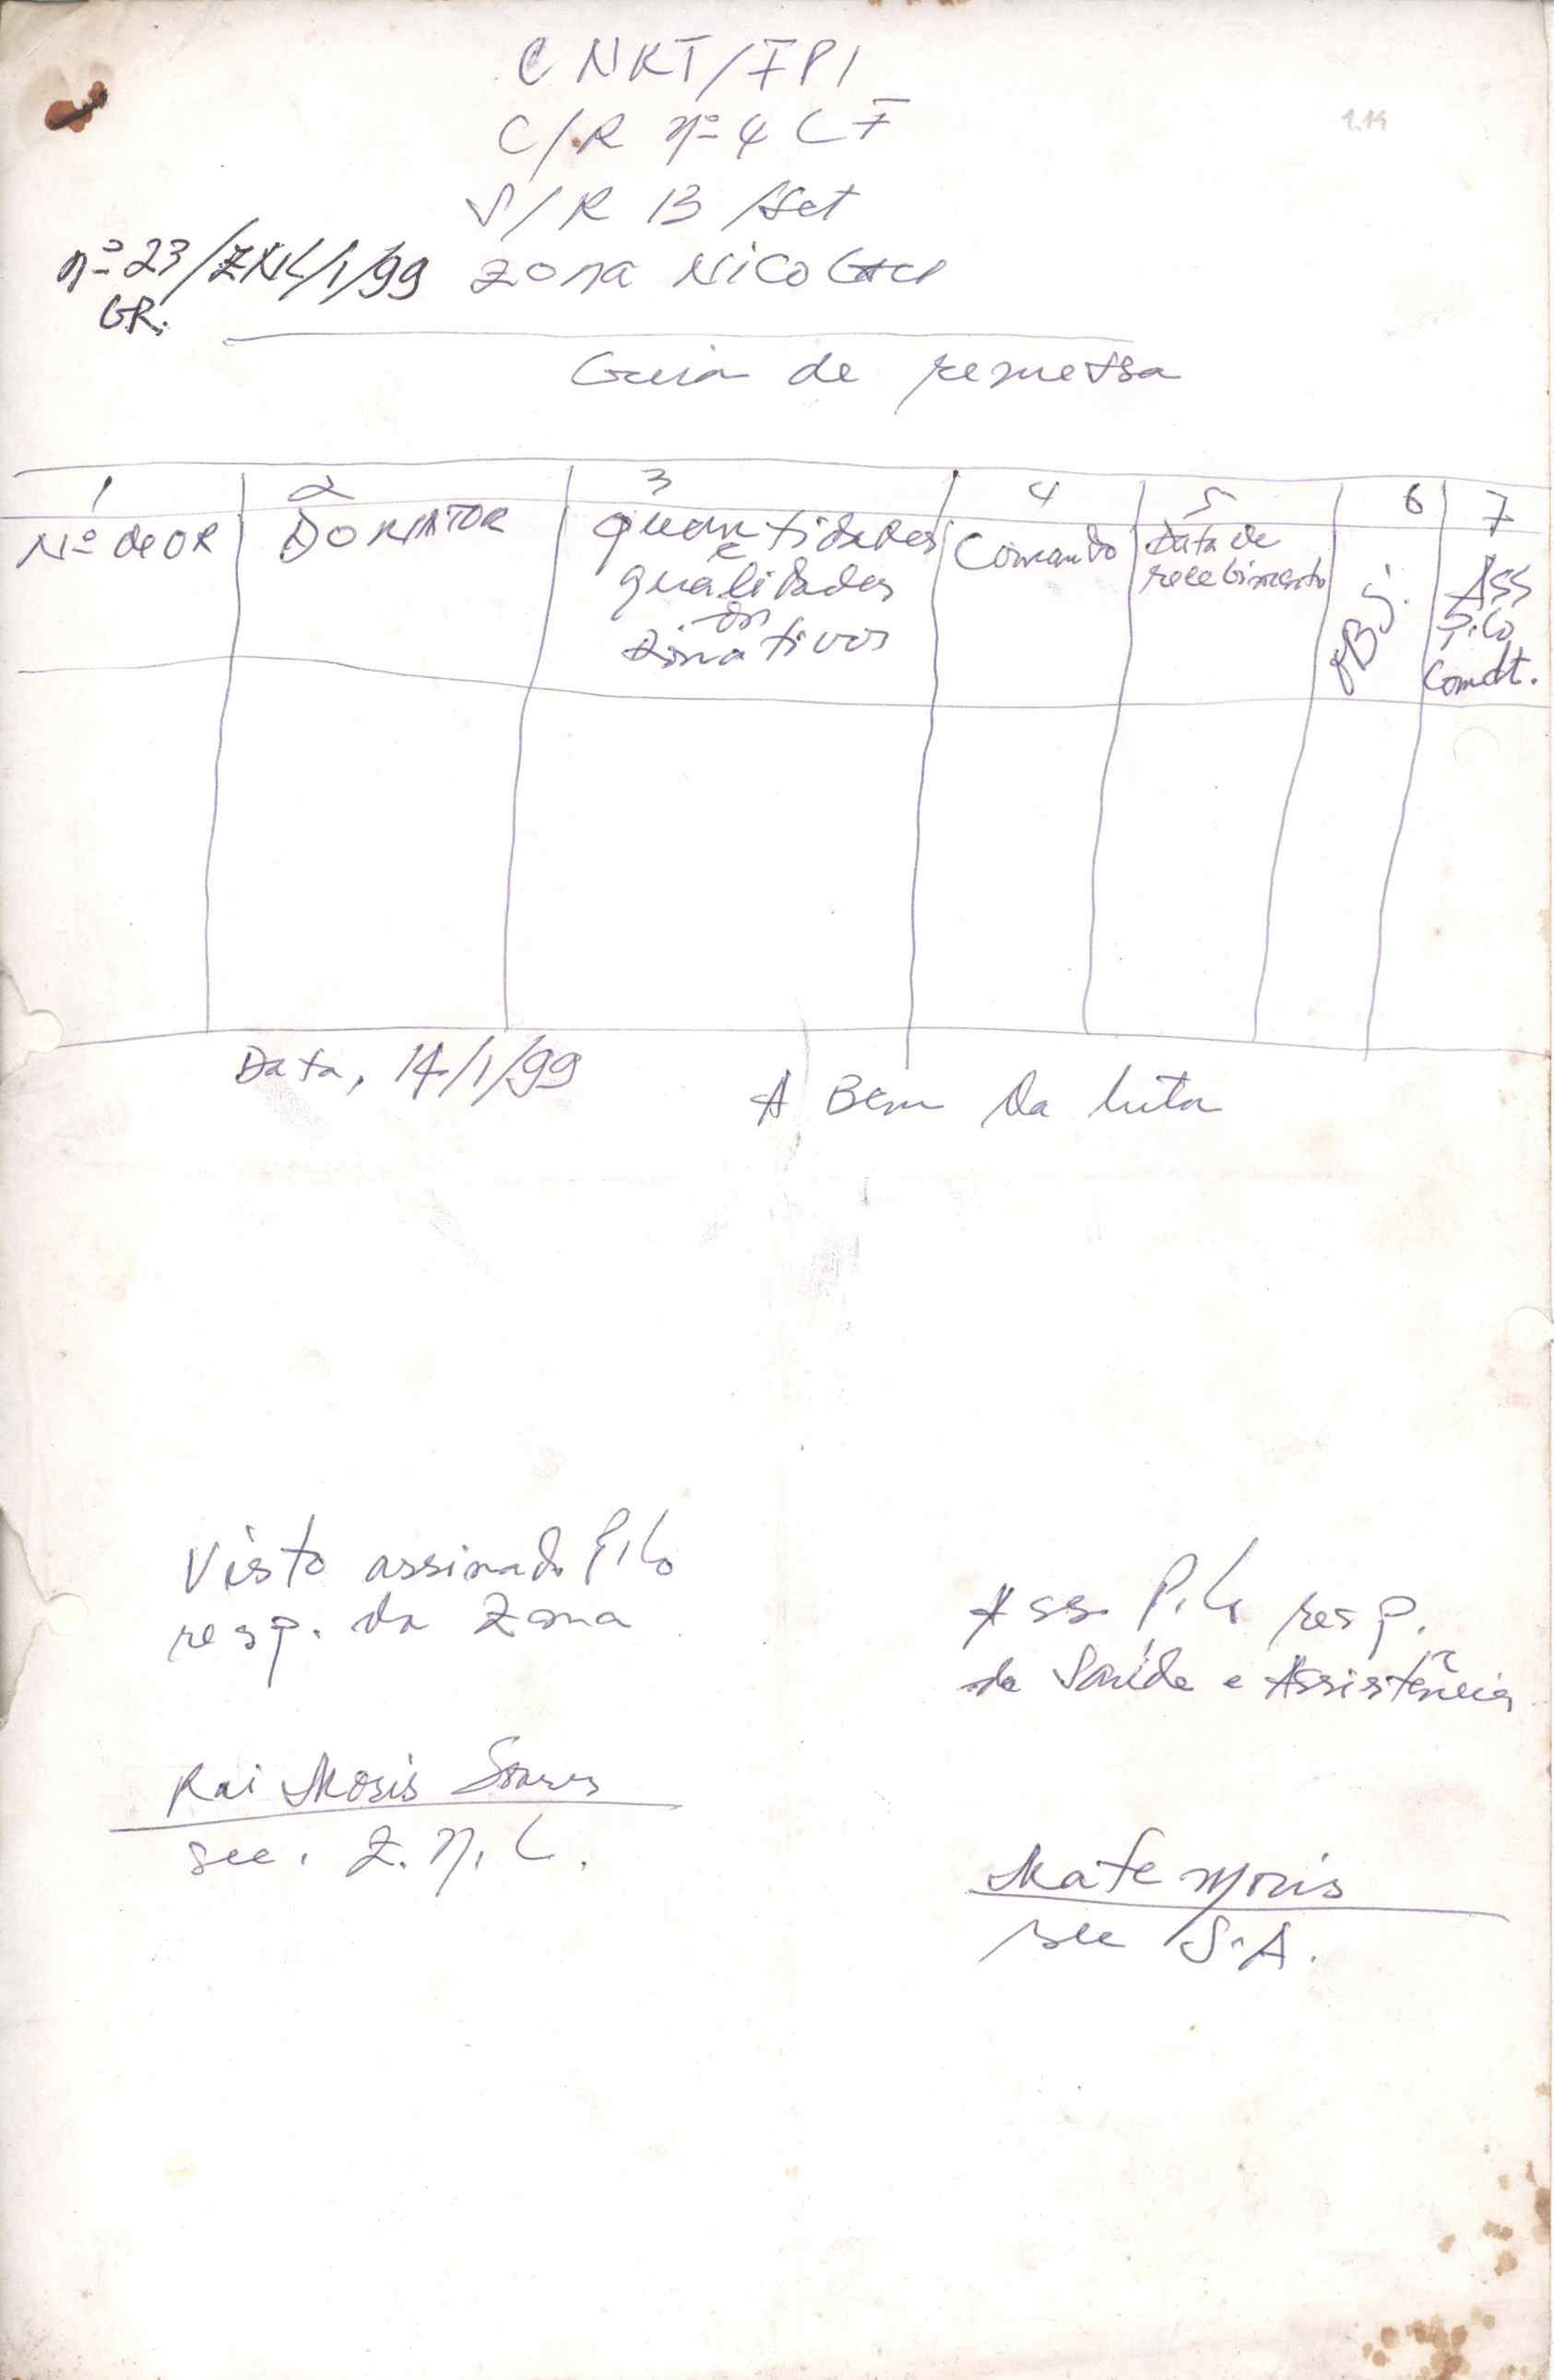 C NRT/FPI
C/R nº 4 L F
1.14
S/R 13 /Set
nº 23/ZNL/1/99 Zona Nico
GR.
Guia de remessa
1 2 3 4 5 6 7
Nº de OR DONATOR quantidades Comando Data de OBj. Ass
e recebimento P.lo
qualidades Comdt.
dos
Donativos
Data, 14/1/99
A Bem da luta
Visto assinado P.lo
resp. da Zona
Ass. P.lo resp.
da Saúde e Assistência
Rai Mosis Soares
sec. Z. N. L.
Mate Moris
sec S.A.